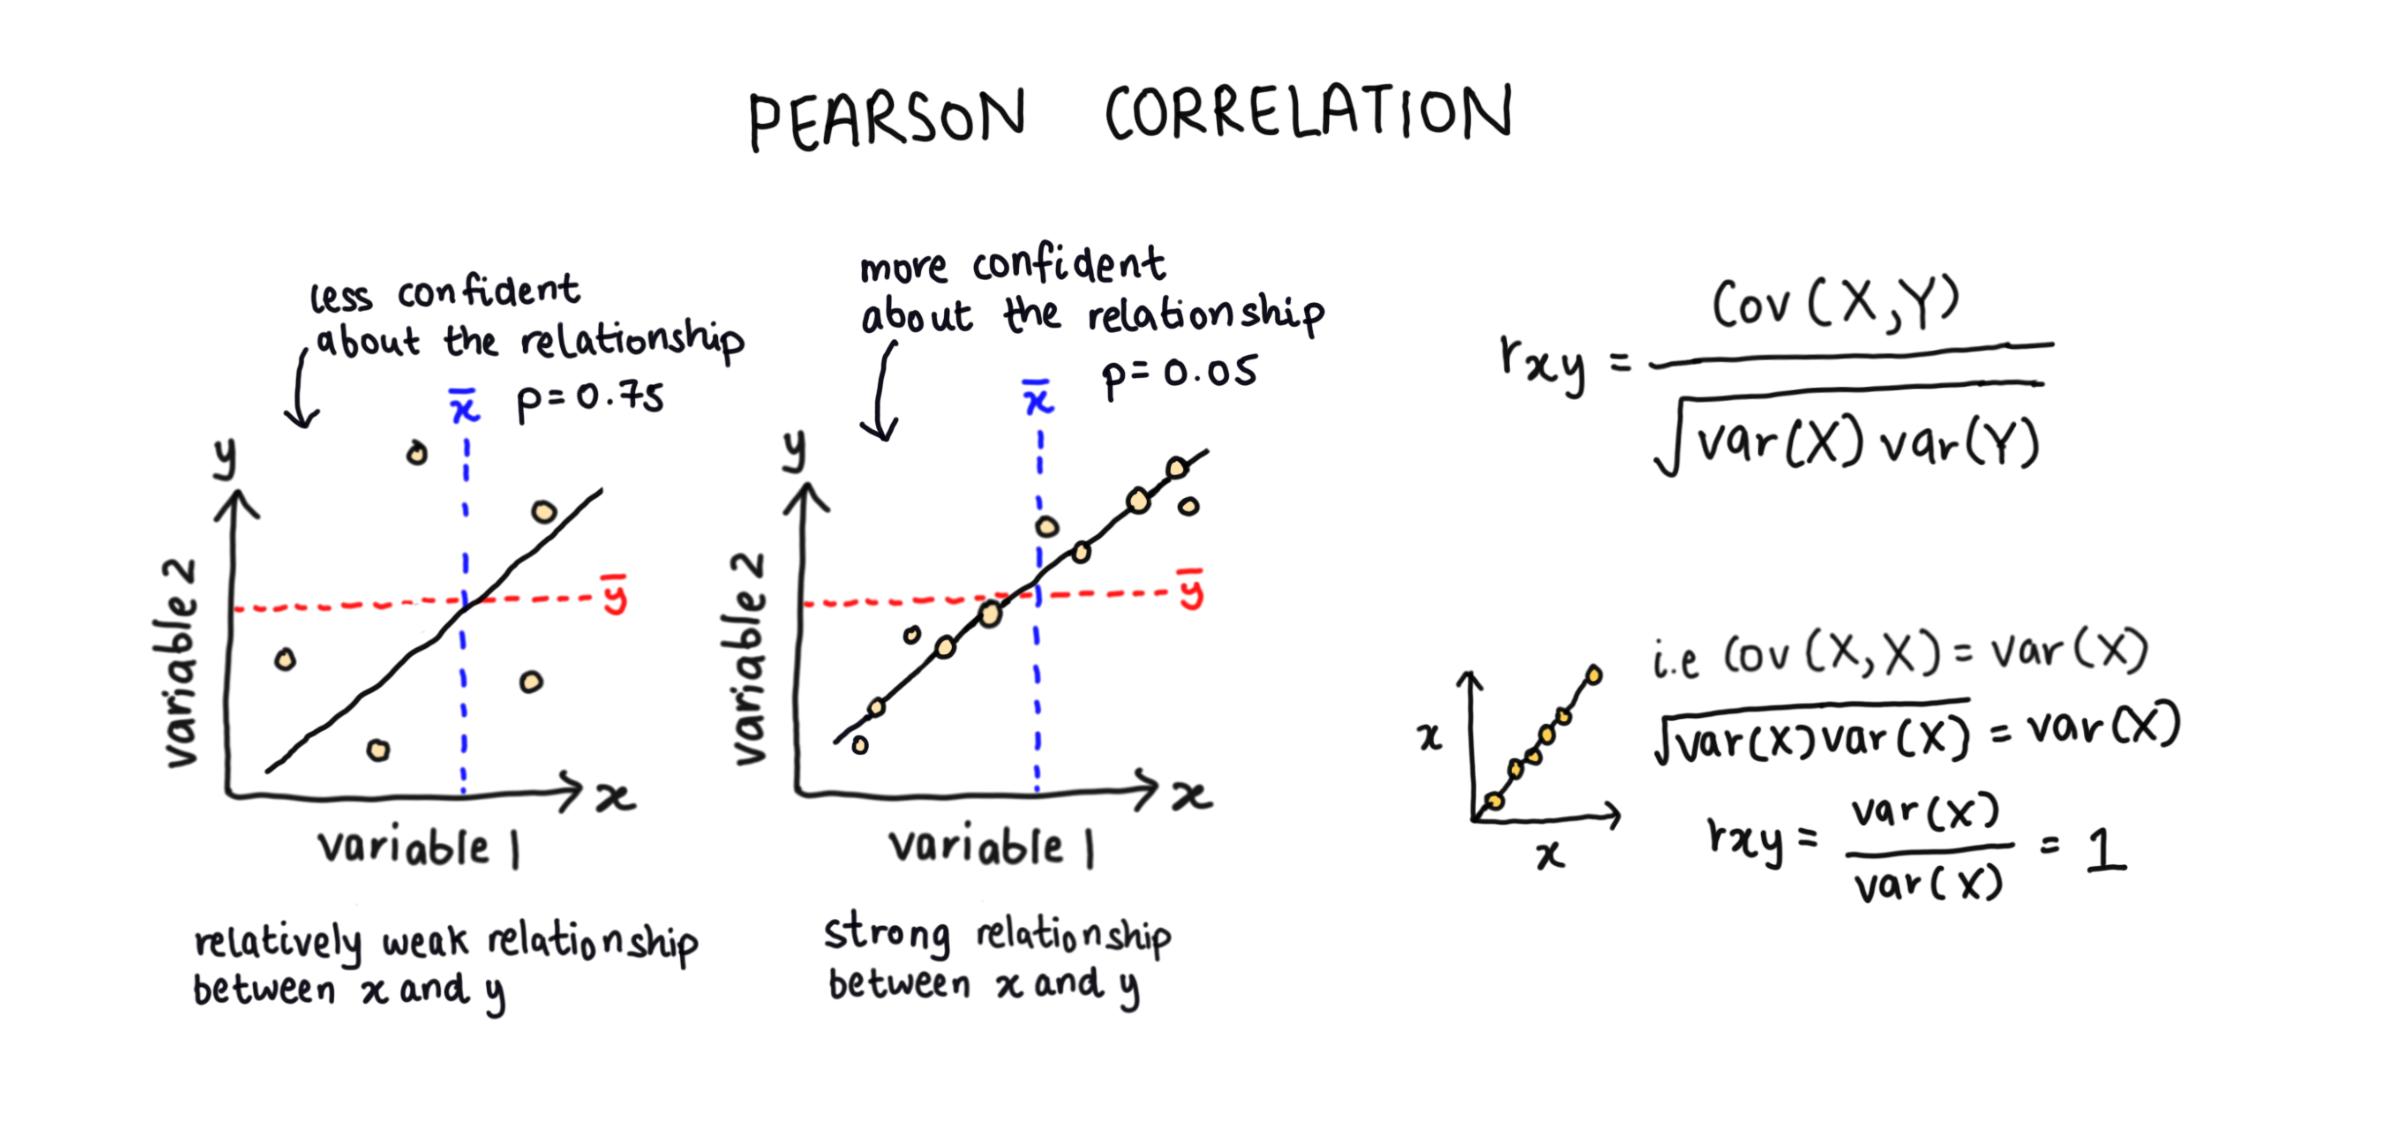 PEARSON CORRELATION
less confident
about the relationship
x̄ p=0.75
y
ȳ
variable 2
x
variable 1
relatively weak relationship
between x and y
more confident
about the relationship
p=0.05
x̄
y
ȳ
variable 2
x
variable 1
strong relationship
between x and y
rxy = Cov(X,Y)
√var(X) var(Y)
x
x
i.e Cov(X,X) = var(X)
√var(X)var(X) = var(X)
rxy = var(X)
var(X) = 1